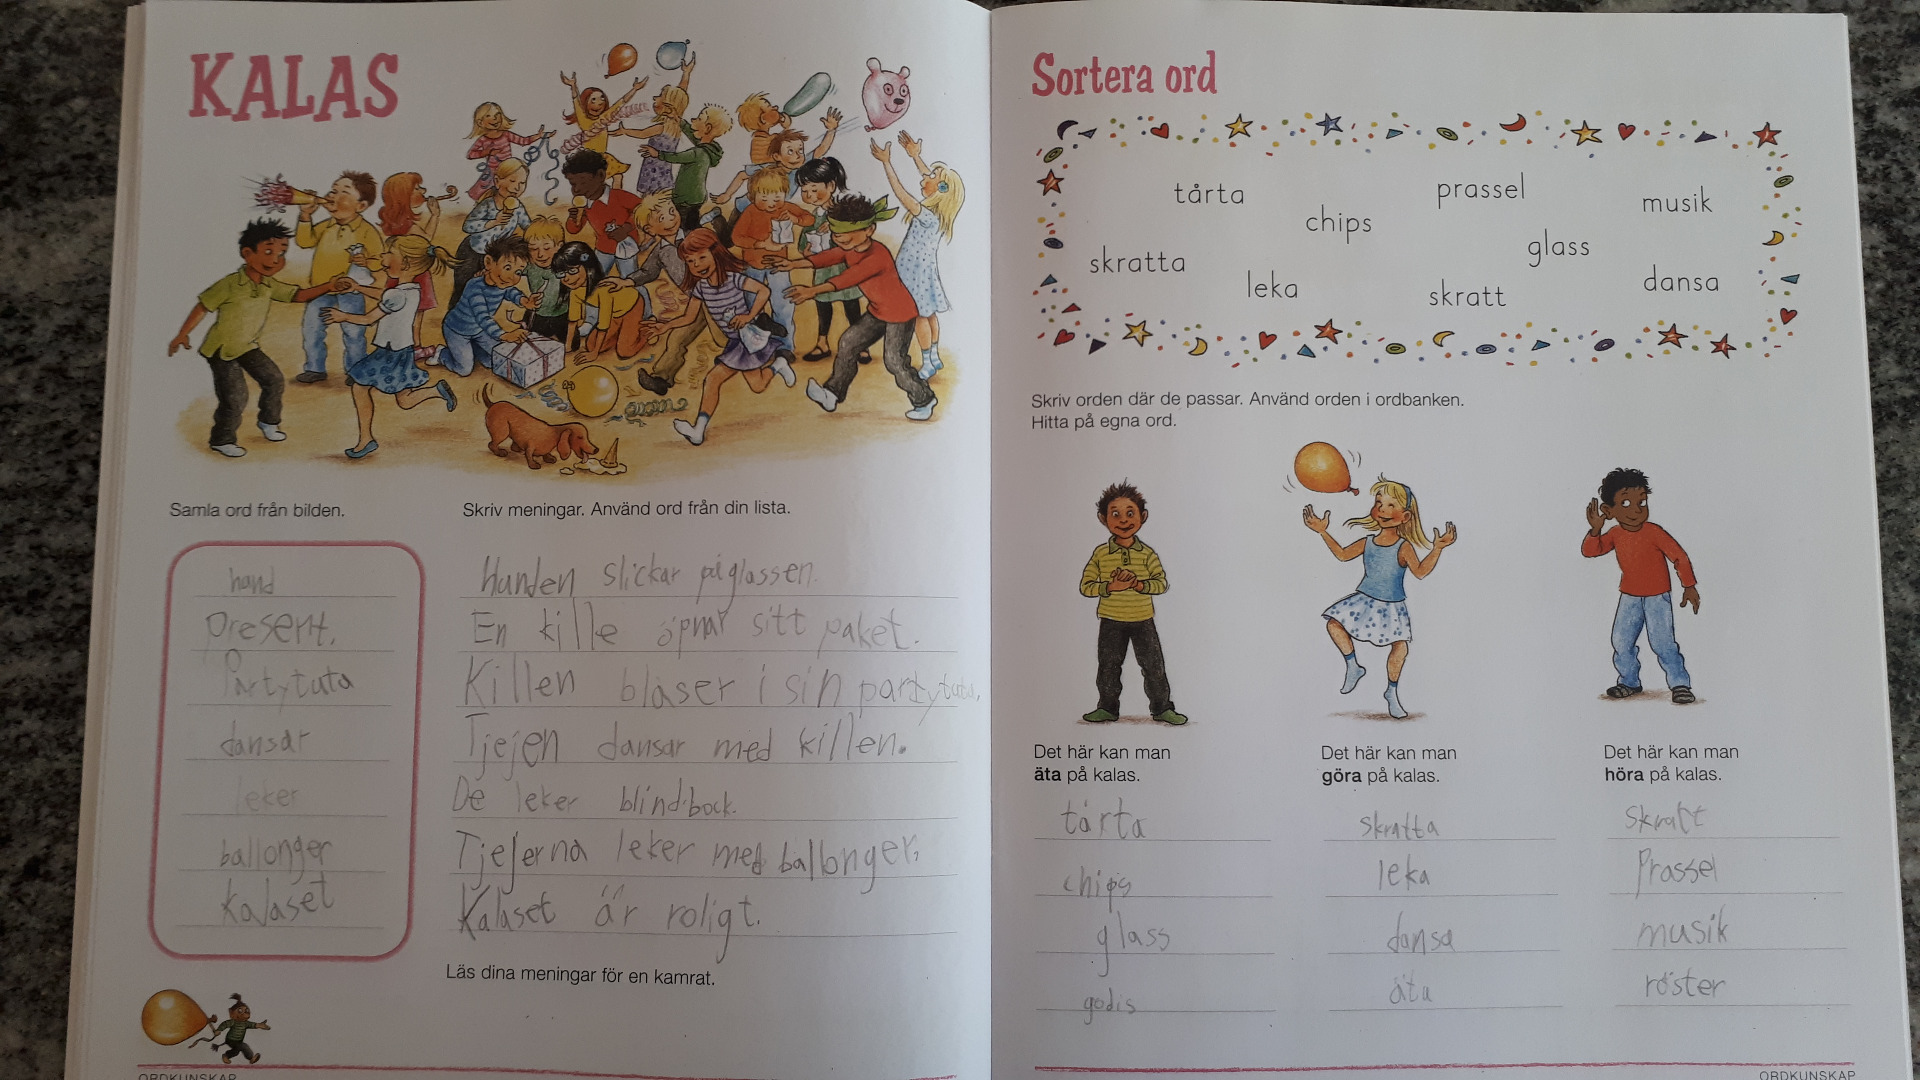 KALAS
Samla ord från bilden.
hund
present.
Partytuta
dansar
leker
ballonger
Kalaset
Skriv meningar. Använd ord från din lista.
Hunden slickar på glassen.
En kille öpnar sitt paket.
Killen blåser i sin partytuta.
Tjejen dansar med killen.
De leker blindbock.
Tjejerna leker med ballonger.
Kalaset är roligt.
Läs dina meningar för en kamrat.
ORDKUNSKAP
Sortera ord
tårta
prassel
musik
chips
glass
skratta
leka
skratt
dansa
Skriv orden där de passar. Använd orden i ordbanken.
Hitta på egna ord.
Det här kan man
äta på kalas.
tårta
chips
glass
godis
Det här kan man
göra på kalas.
skratta
leka
dansa
äta
Det här kan man
höra på kalas.
skratt
Prassel
musik
röster
ORDKUNSKAP